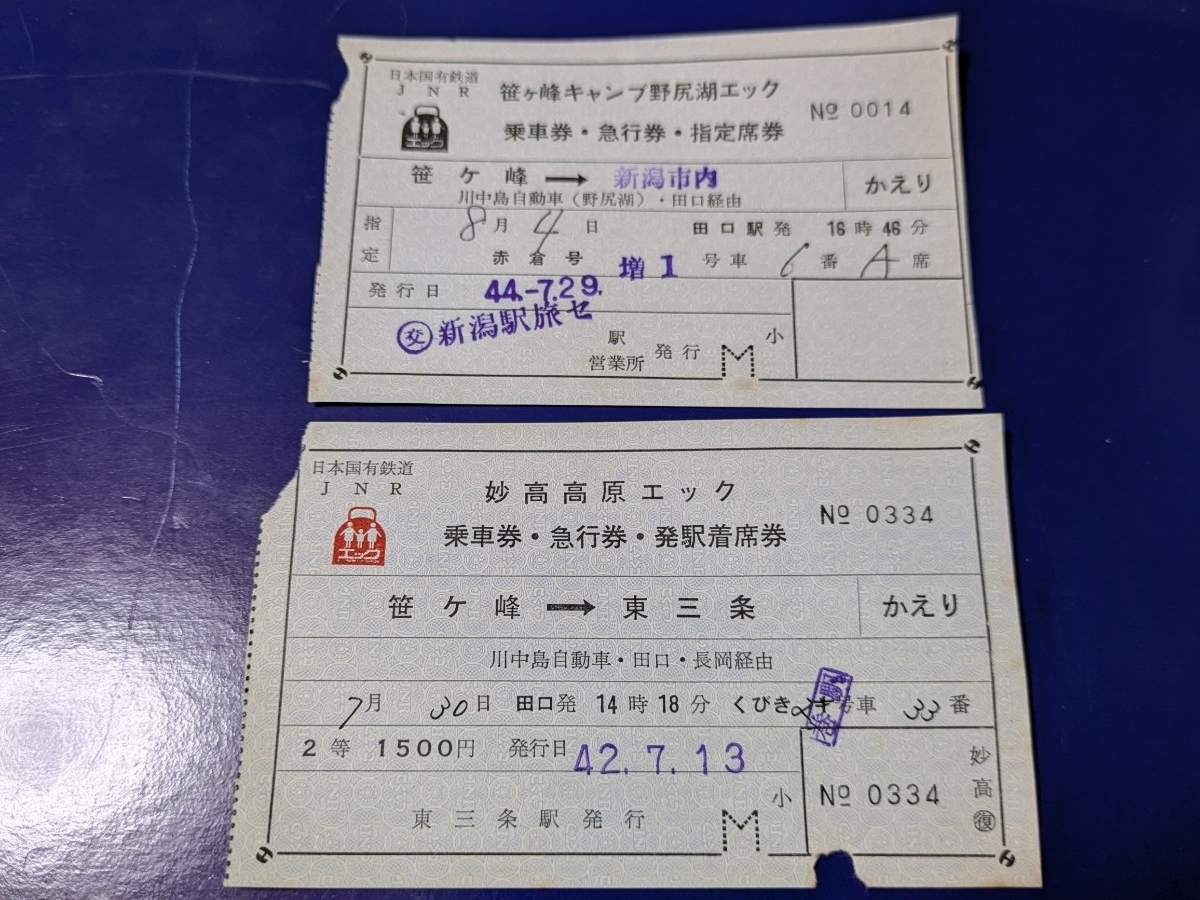 日本国有鉄道
JNR
エック
笹ヶ峰キャンプ野尻湖エック
№ 0014
乗車券・急行券・指定席券
笹ケ峰 → 新潟市内
かえり
川中島自動車(野尻湖)・田口経由
指定
8月4日 田口駅発 16時46分
赤倉号 増1号車 6番 A席
発行日 44.-7.29.
交 新潟駅旅セ
駅
営業所 発行
M
小
日本国有鉄道
JNR
エック
妙高高原エック
№ 0334
乗車券・急行券・発駅着席券
笹ケ峰 → 東三条
かえり
川中島自動車・田口・長岡経由
7月30日 田口発 14時18分 くびき 号車 33番
2等 1500円 発行日 42.7.13
東三条駅発行
M
小
№ 0334
妙高復